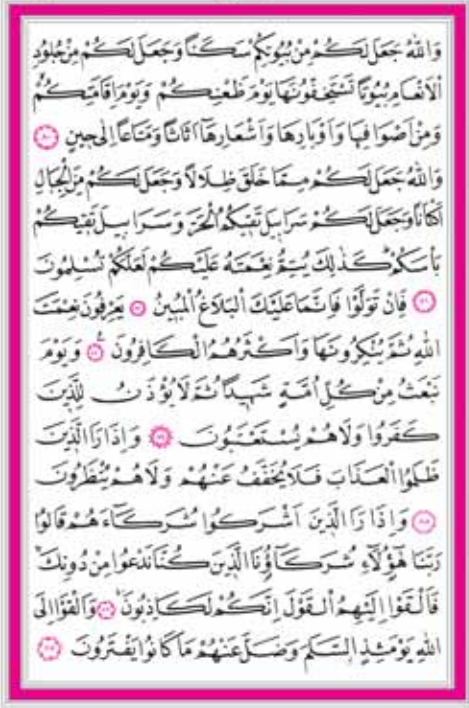 وَاللّٰهُ جَعَلَ لَكُمْ مِنْ بُيُوتِكُمْ سَكَنًا وَجَعَلَ لَكُمْ مِنْ جُلُودِ
الْاَنْعَامِ بُيُوتًا تَسْتَخِفُّونَهَا يَوْمَ ظَعْنِكُمْ وَيَوْمَ اِقَامَتِكُمْ
وَمِنْ اَصْوَافِهَا وَاَوْبَارِهَا وَاَشْعَارِهَٓا اَثَاثًا وَمَتَاعًا اِلٰى حِينٍ ﴿٨٠﴾
وَاللّٰهُ جَعَلَ لَكُمْ مِمَّا خَلَقَ ظِلَالًا وَجَعَلَ لَكُمْ مِنَ الْجِبَالِ
اَكْنَانًا وَجَعَلَ لَكُمْ سَرَابِيلَ تَقِيكُمُ الْحَرَّ وَسَرَابِيلَ تَقِيكُمْ
بَاْسَكُمْ كَذٰلِكَ يُتِمُّ نِعْمَتَهُ عَلَيْكُمْ لَعَلَّكُمْ تُسْلِمُونَ
﴿٨١﴾ فَاِنْ تَوَلَّوْا فَاِنَّمَا عَلَيْكَ الْبَلَاغُ الْمُبِينُ ﴿٨٢﴾ يَعْرِفُونَ نِعْمَتَ
اللّٰهِ ثُمَّ يُنْكِرُونَهَا وَاَكْثَرُهُمُ الْكَافِرُونَ ﴿٨٣﴾ وَيَوْمَ
نَبْعَثُ مِنْ كُلِّ اُمَّةٍ شَهِيدًا ثُمَّ لَا يُؤْذَنُ لِلَّذِينَ
كَفَرُوا وَلَا هُمْ يُسْتَعْتَبُونَ ﴿٨٤﴾ وَاِذَا رَاَ الَّذِينَ
ظَلَمُوا الْعَذَابَ فَلَا يُخَفَّفُ عَنْهُمْ وَلَا هُمْ يُنْظَرُونَ
﴿٨٥﴾ وَاِذَا رَاَ الَّذِينَ اَشْرَكُوا شُرَكَٓاءَهُمْ قَالُوا
رَبَّنَا هٰٓؤُ۬لَٓاءِ شُرَكَٓاؤُ۬نَا الَّذِينَ كُنَّا نَدْعُوا مِنْ دُونِكَ
فَاَلْقَوْا اِلَيْهِمُ الْقَوْلَ اِنَّكُمْ لَكَاذِبُونَ ﴿٨٦﴾ وَاَلْقَوْا اِلَى
اللّٰهِ يَوْمَئِذٍ السَّلَمَ وَضَلَّ عَنْهُمْ مَا كَانُوا يَفْتَرُونَ ﴿٨٧﴾